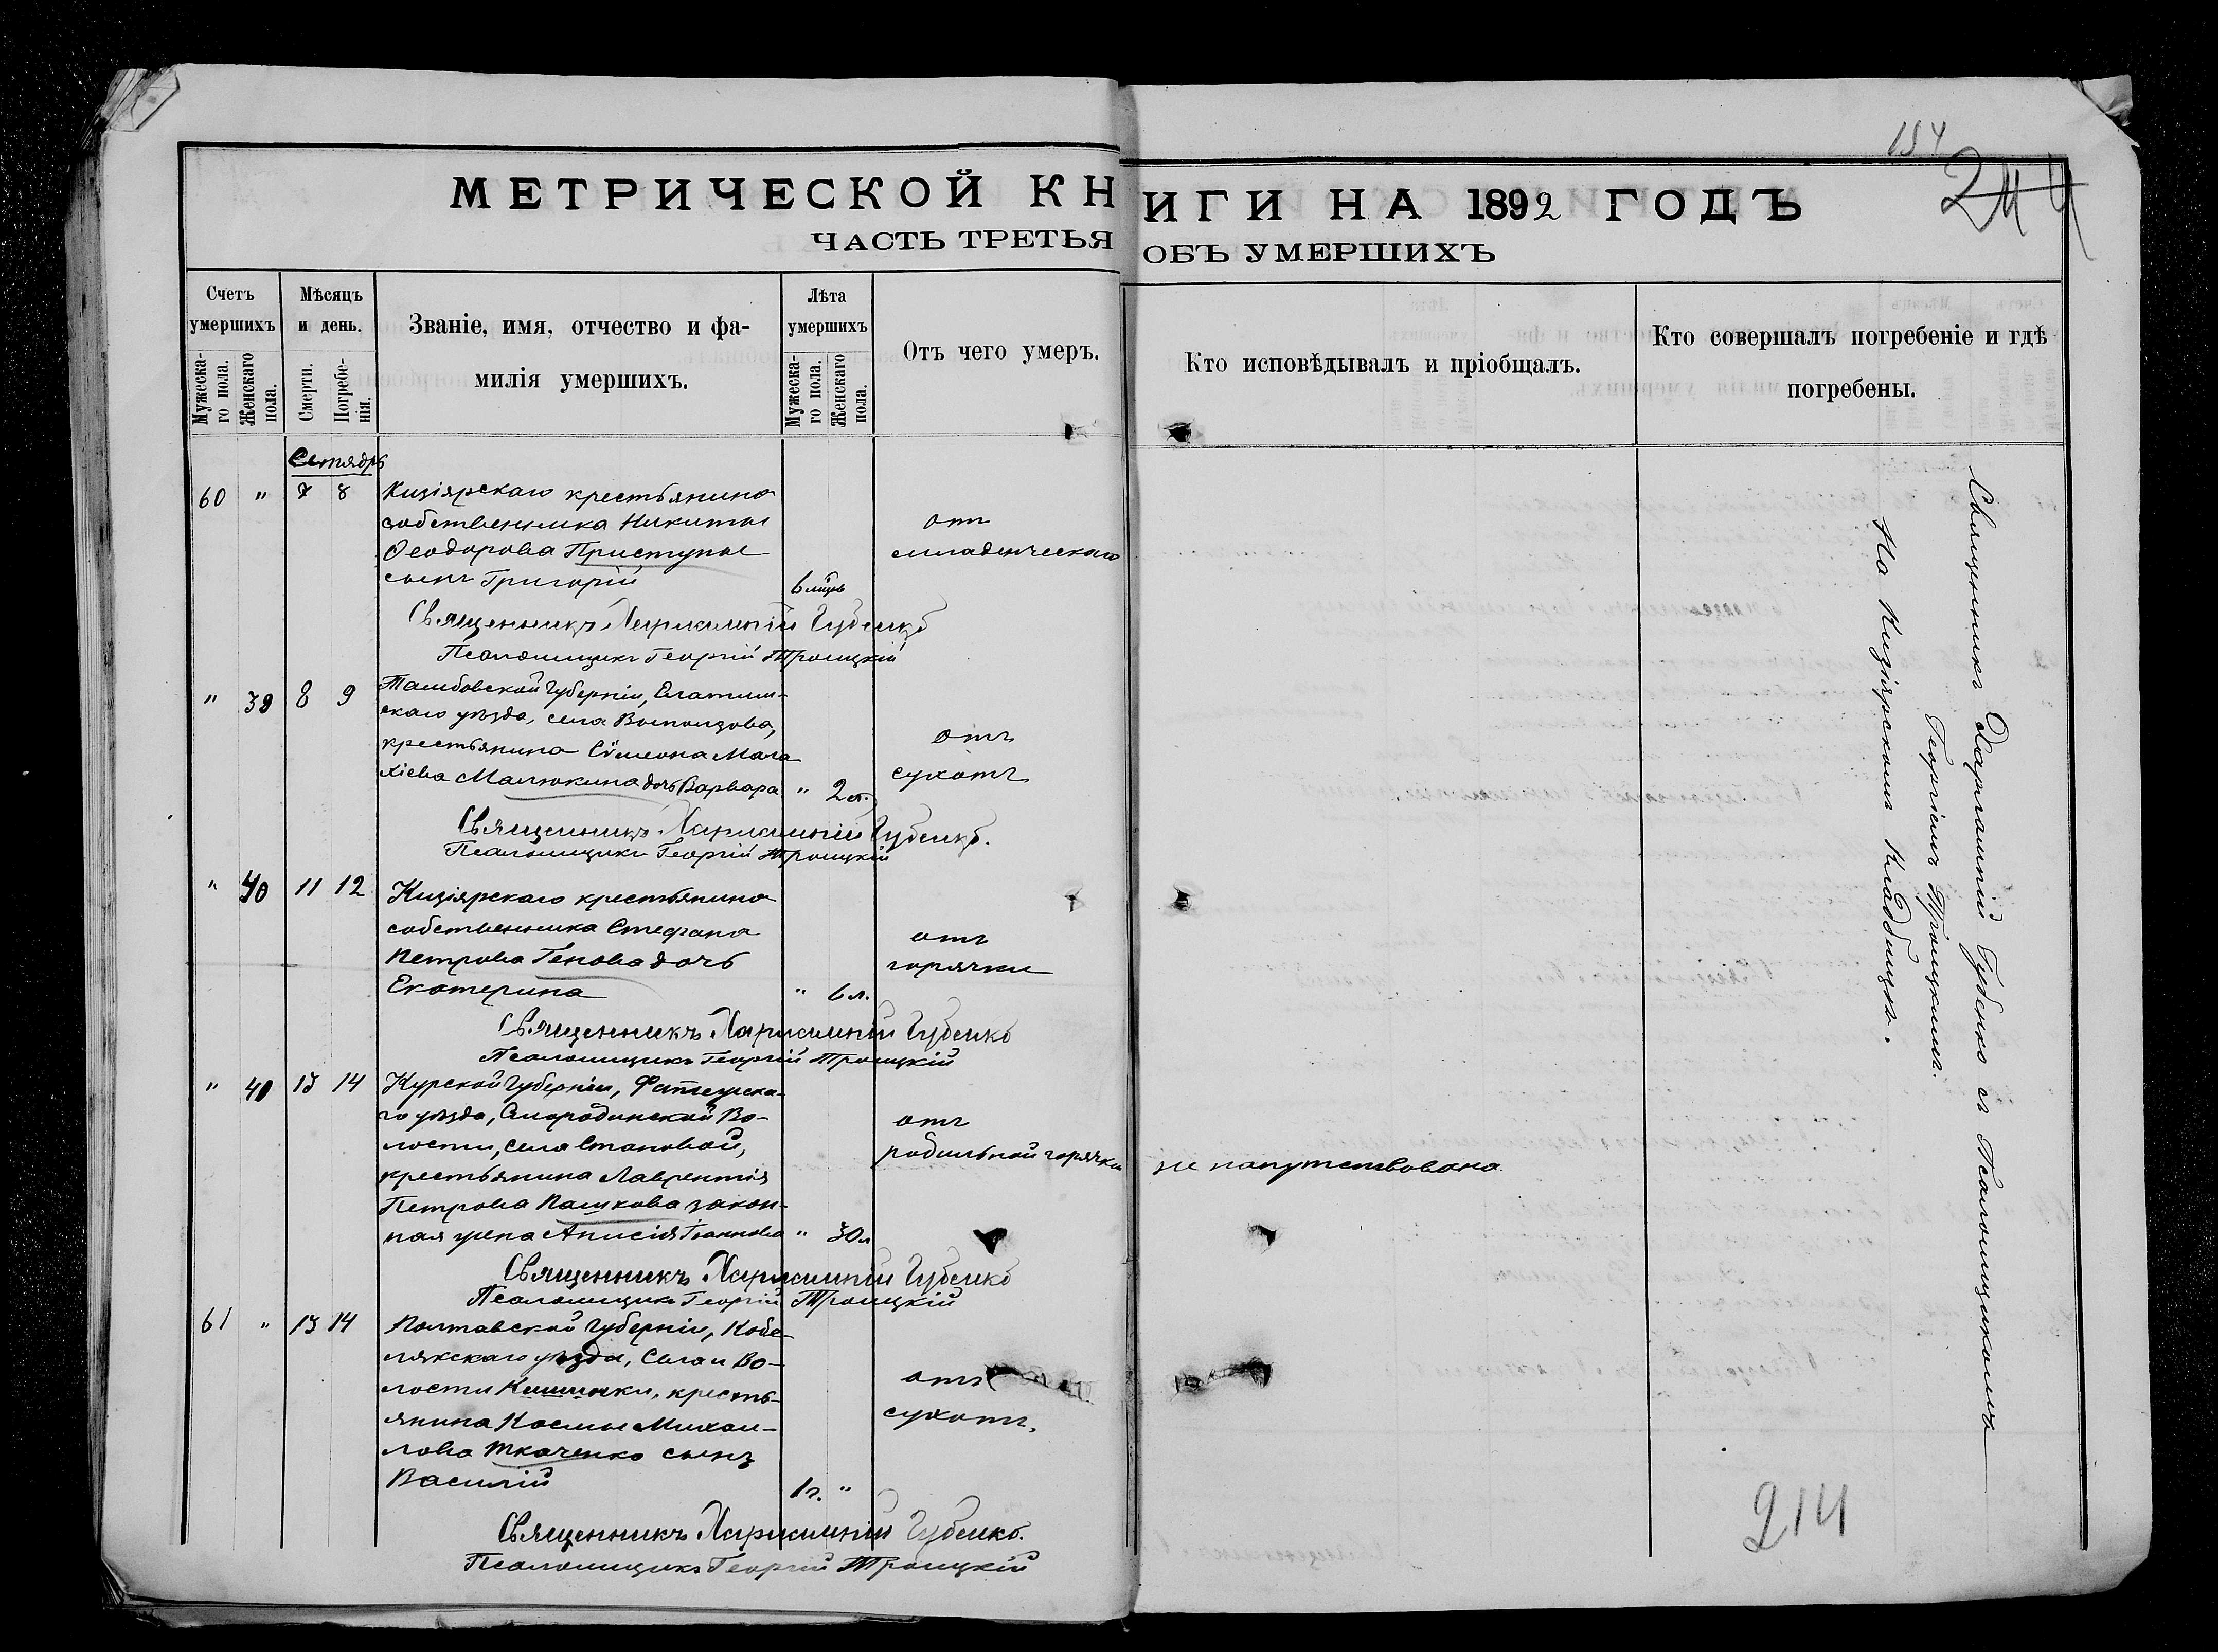 154
214
МЕТРИЧЕСКОЙ КНИГИ НА 1892 ГОДЪ
ЧАСТЬ ТРЕТЬЯ ОБЪ УМЕРШИХЪ
Счетъ умершихъ
Мужескаго пола.
Женскаго пола.
Мѣсяцъ и день.
Смерти.
Погребенія.
Званіе, имя, отчество и фамилія умершихъ.
Лѣта умершихъ
Мужескаго пола.
Женскаго пола.
Отъ чего умеръ.
Кто исповѣдывалъ и пріобщалъ.
Кто совершалъ погребеніе и гдѣ погребены.
60 " 7 8 Кизіярскаго крестьянина
собственника Никиты отъ
Ѳеодорова Приступы младенческаго
сынъ Григорій 6 мцъ
Священникъ Харлампій Губенко
Псаломщикъ Георгій Троицкій
" 39 8 9 Тамбовской губерніи, Елатом-
скаго уѣзда, села
крестьянина Сѵмеона Мала- отъ
хіева Малюкина дочь Варвара " 2 л. сухотъ
Священникъ Харлампій Губенко.
Псаломщикъ Георгій Троицкій
" 40 11 12 Кизіярскаго крестьянина
собственника Стефана отъ
Петрова Генова дочь горячки
Екатерина " 6 л.
Священникъ Харлампій Губенко
Псаломщикъ Георгій Троицкій
" 13 14 Курской губерніи, Фатежска-
го уѣзда, Смородинской Во- отъ
лости, села Становой, родильной горячки не напутствована
крестьянина Лаврентія
Петрова Пашкова закон-
ная жена Анисія Іоаннова " 30 л
Священникъ Харлампій Губенко
Псаломщикъ Георгій Троицкій
61 " 13 14 Полтавской губерніи, Кобе-
лякскаго уѣзда, Села и Во-
лости Кишинки, кресть- отъ
янина Космы Михаи- сухотъ,
лова Ткаченко сынъ
Василій 1 г. "
Священникъ Харлампій Губенко.
Псаломщикъ Георгій Троицкій
Священникъ Харлампій Губенко съ Псаломщикомъ
Георгіемъ Троицкимъ.
На Кизіярскомъ Кладбищѣ.
214